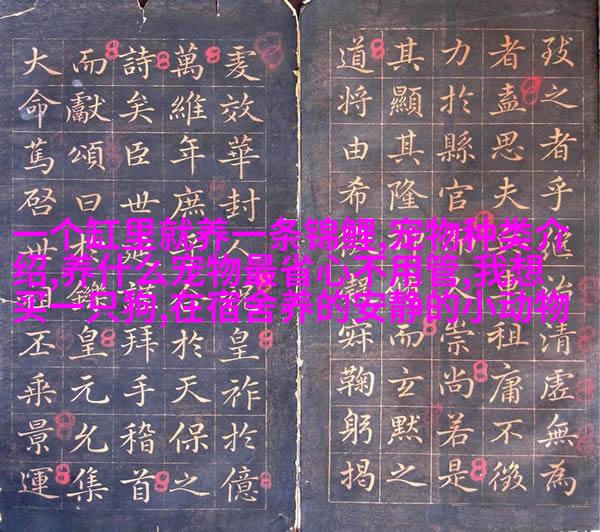 致之者乎治清虛無為
者盍思夫祖庸不徵
力於縣官崇尚若是
其顯其隆而玄默之
道將由希寂鞠躬揭
戛效華封人皇祚於億
萬維年庶於天保之
詩矣臣世拜手稽首
而獻頌曰皇元允集
大命篤啓世丕乘景運
一个缸里就养一条锦鲤,宠物种类介
绍,养什么宠物最省心不用管,我想
买一只狗,在宿舍养的安静的小动物